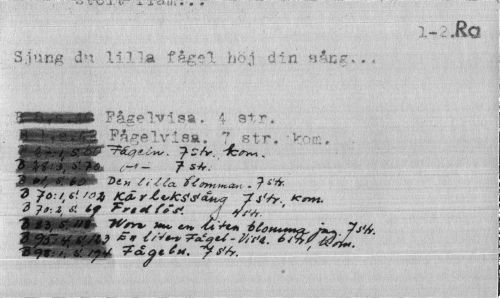 stolt fram...
1-2. Ra
Sjung du lilla fågel höj din sång...
Fågelvisa. 4 str.
Fågelvisa. 7 str. kom.
Fågeln. 7 str. kom.
7 str.
Den lilla blomman. 7 str.
B 70:1, s. 102 Kärlekssång 7 str. kom.
B 70:2, s. 69 Fredlös. 4 str.
Wore nu en liten blomma jag. 7 str.
En liten Fågel-Visa. 6 str, kom.
Fågeln. 7 str.